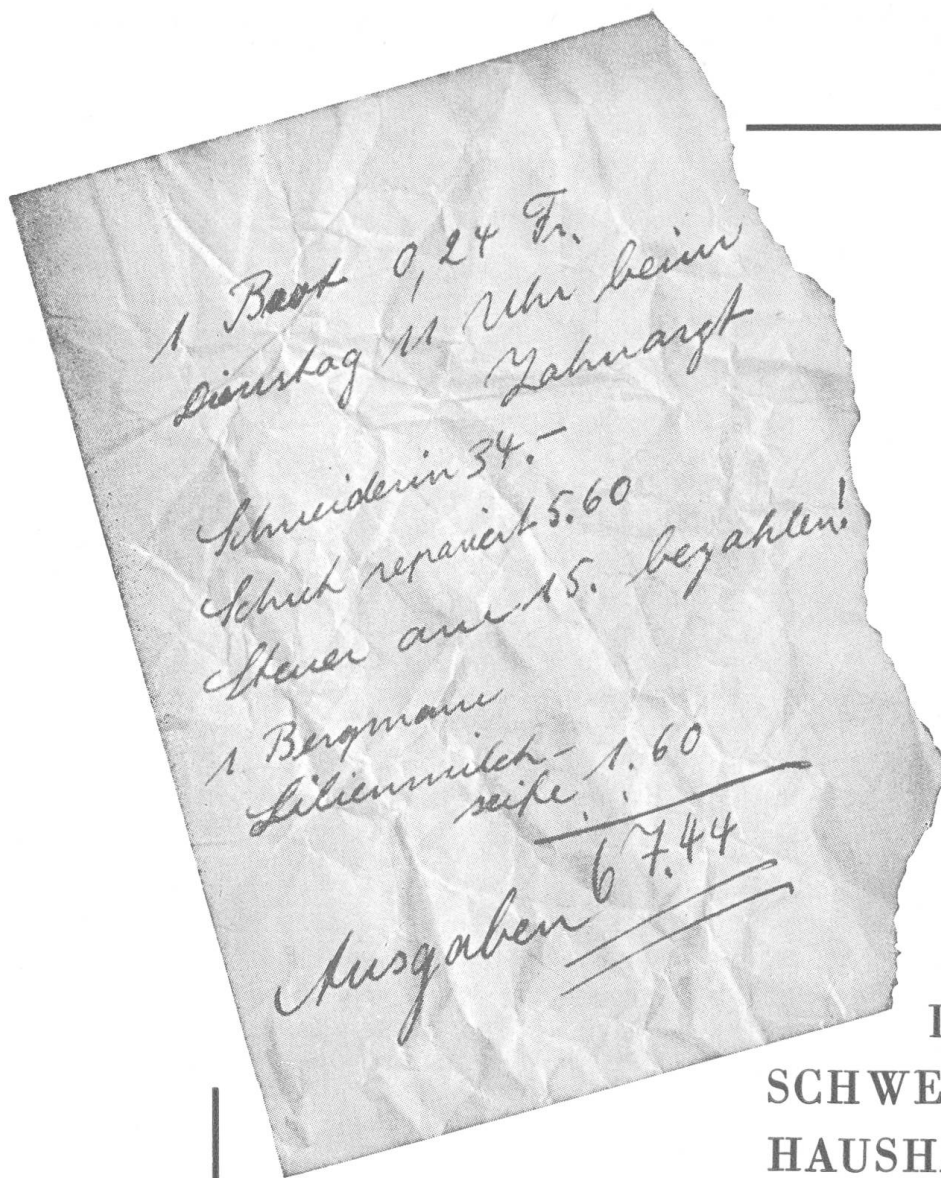 1 Brot 0,24 Fr.
Dienstag 11 Uhr beim
Zahnarzt
Schneiderin 34.-
Schuh repariert 5.60
Steuer am 15. bezahlen!
1 Bergmann
Lilienmilch-
seife 1.60
Ausgaben 67.44
SCHWE
HAUSHA